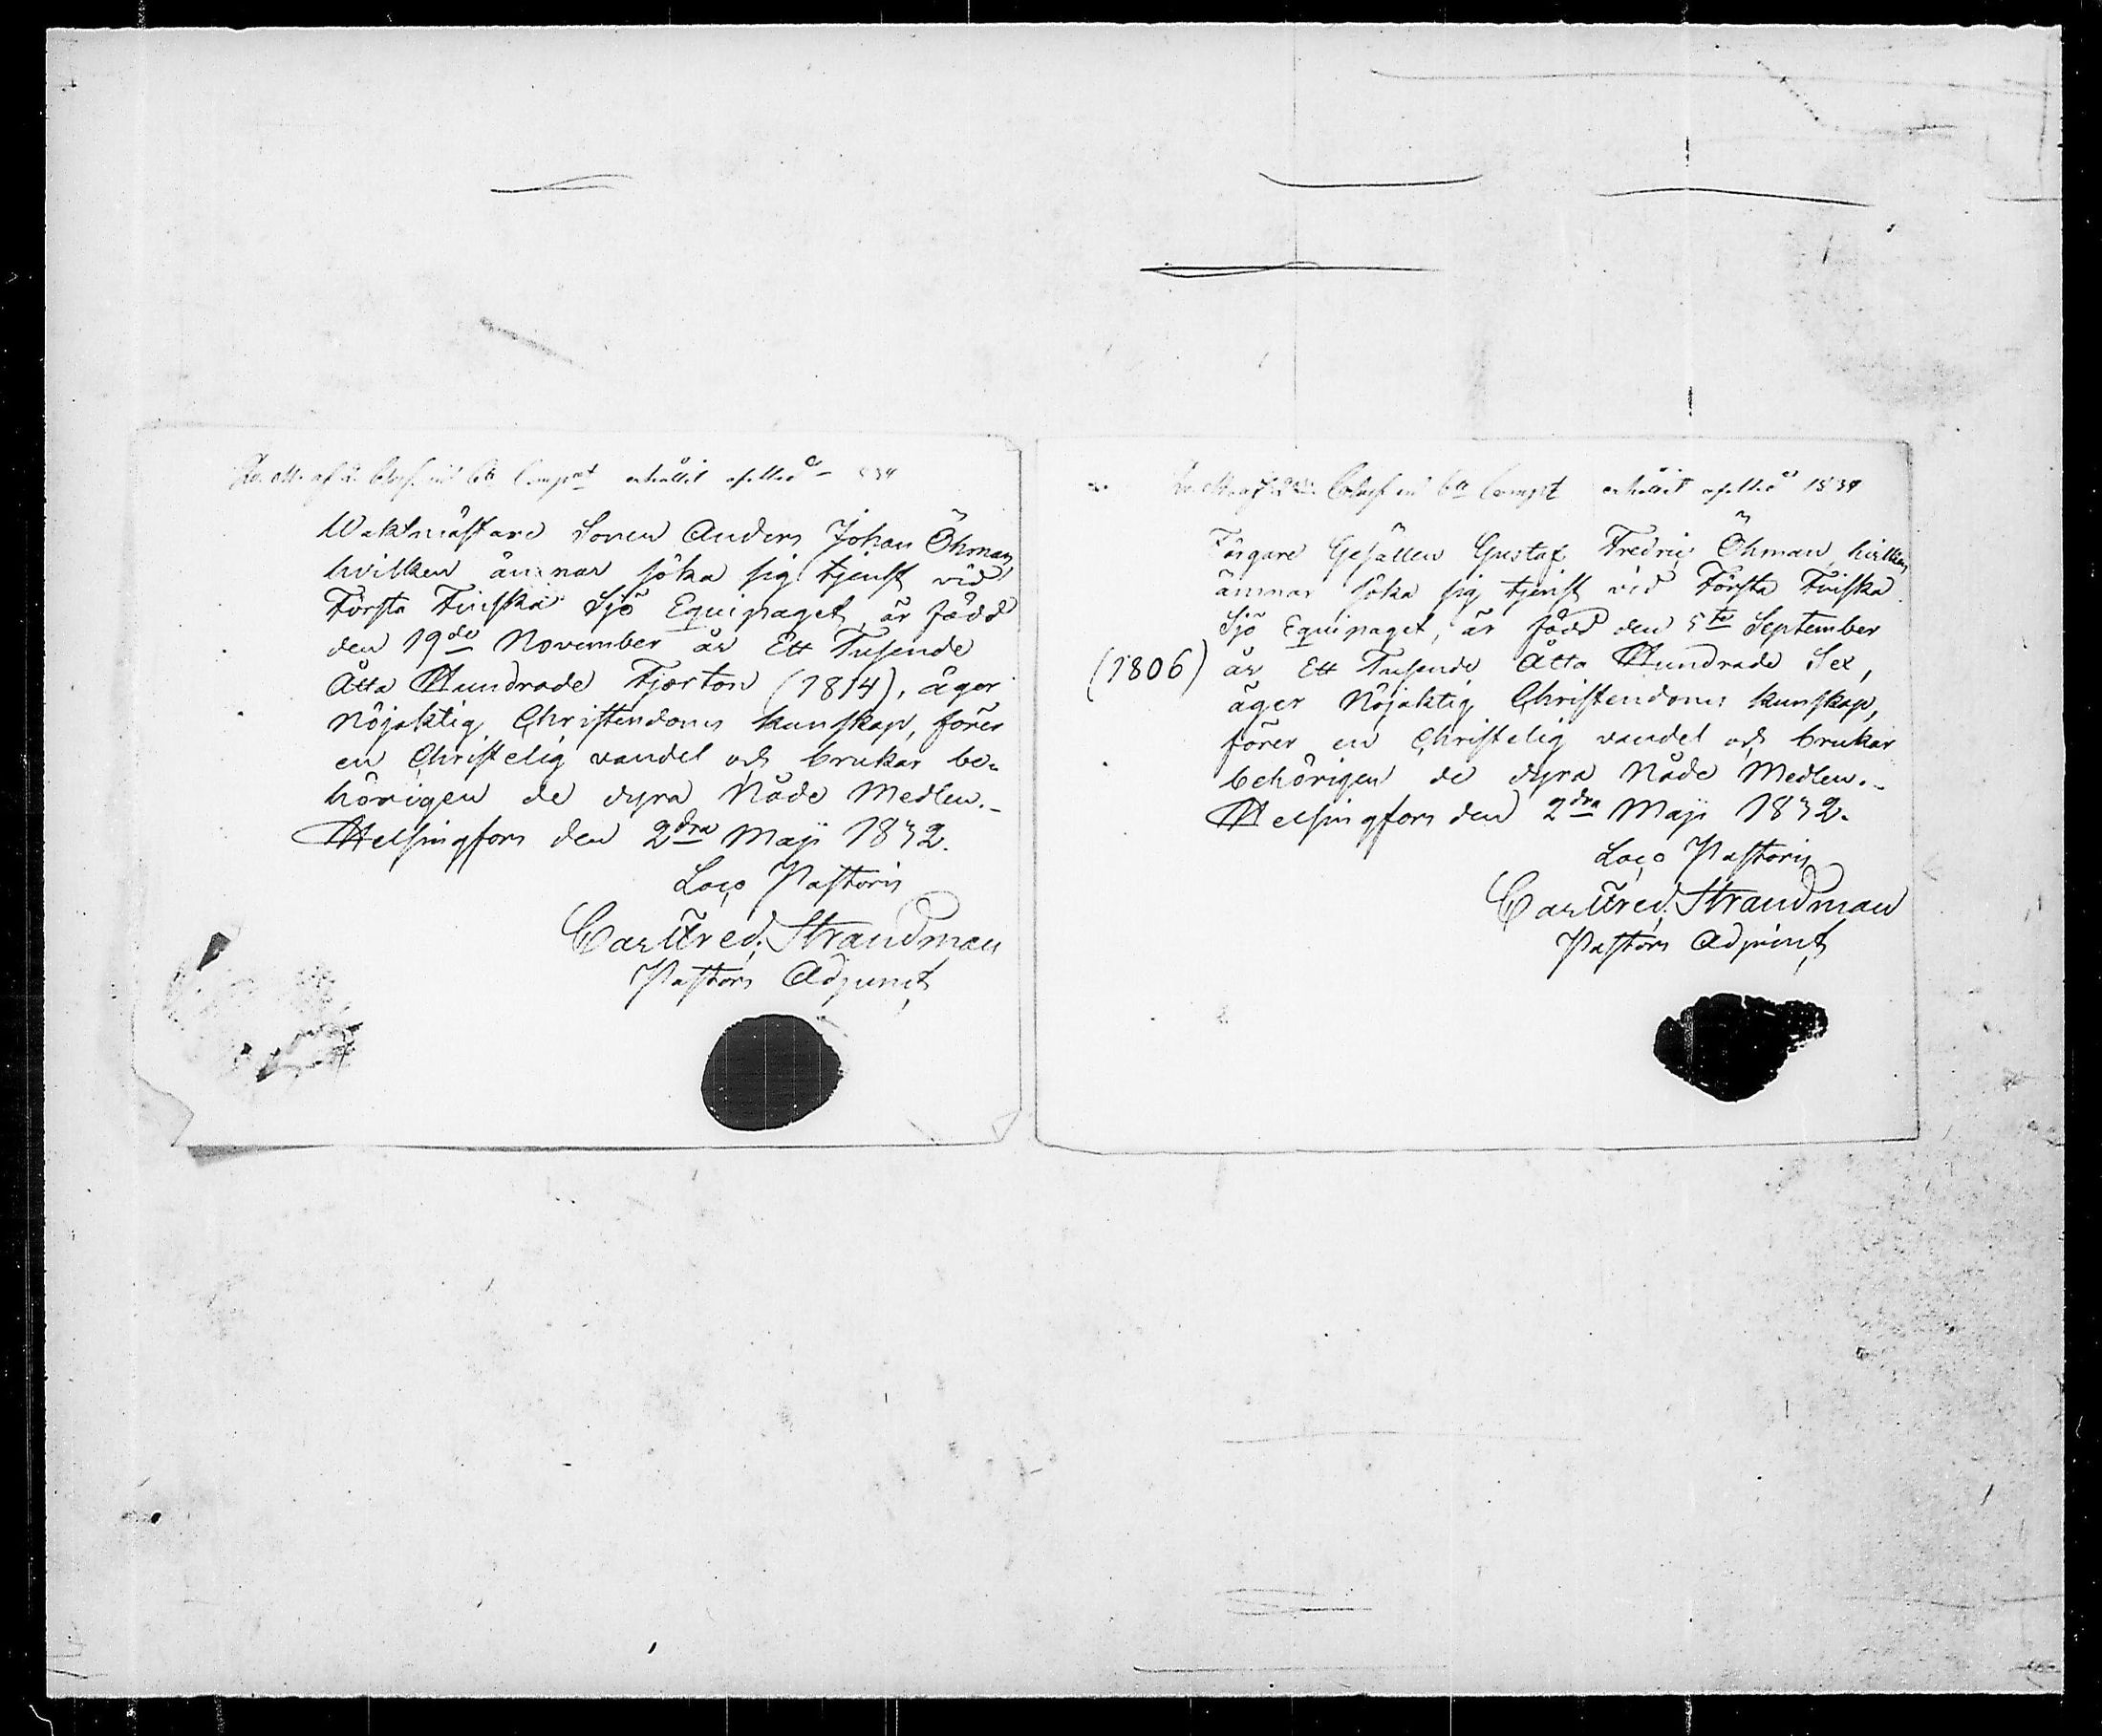 erhållit afsked 1834
Waktmästare Sonen Anders Johan Öhman,
hvilken ämnar söka sig tjenst vid
Första Finska Sjö Equipaget, är född
den 19de November år Ett Tusende
Åtta Hundrade Fjorton (1814), äger
Nöjaktig Christendoms kunskap, förer
en Christelig vandel och brukar be-
hörigen de dyra Nåde Medlen. -
Helsingfors den 2dra Maji 1832.
Loco Pastoris
Carl Fred. Strandman
Pastors Adjunct
6te Compt erhållit afsked 1834
Färgare Gesällen Gustaf Fredric Öhman, hvilken
ämnar söka sig tjenst vid Första Finska
Sjö Equipaget, är född den 5te September
(1806) år Ett Tusende Åtta Hundrade Sex,
äger Nöjaktig Christendoms kunskap,
förer en Christelig vandel och brukar
behörigen de dyra Nåde Medlen. -
Helsingfors den 2dra Maji 1832.
Loco Pastoris
Carl Fred. Strandman
Pastors Adjunct